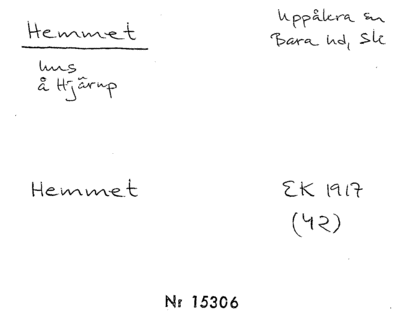 Hemmet
Uppåkra sn
Bara hd, Sk
hus
å Hjärup
Hemmet
EK 1917
(42)
Nr 15306